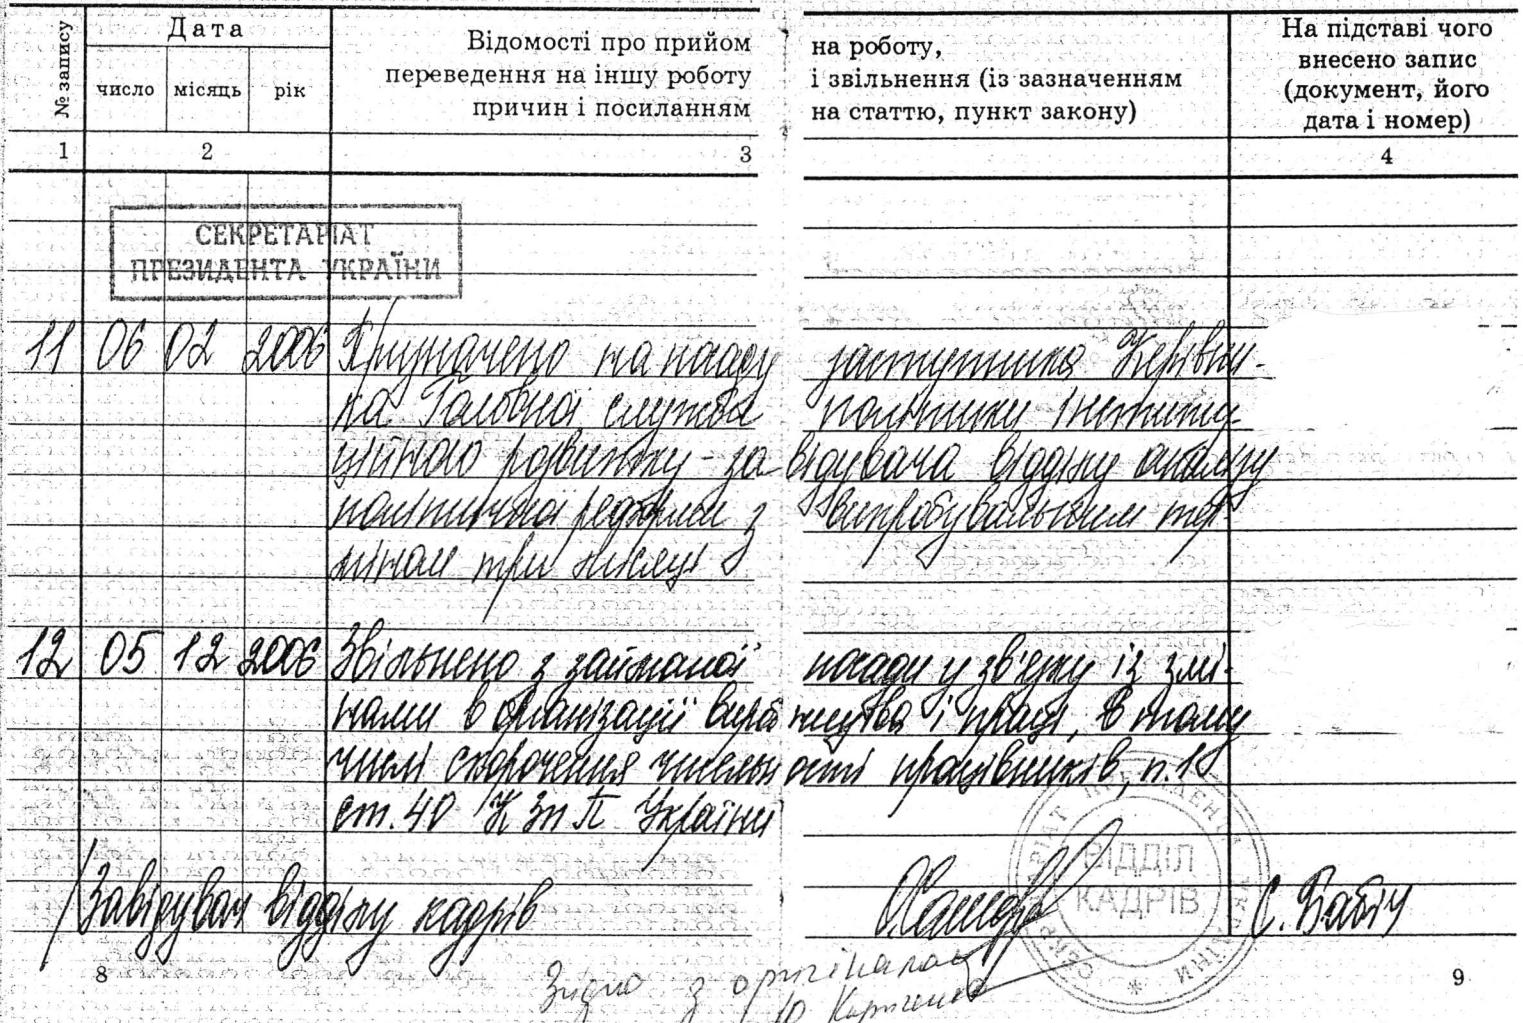 № запису
Дата
число місяць рік
Відомості про прийом на роботу,
переведення на іншу роботу і звільнення (із зазначенням
причин і посиланням на статтю, пункт закону)
На підставі чого
внесено запис
(документ, його
дата і номер)
1 2 3 4
СЕКРЕТАРІАТ
ПРЕЗИДЕНТА УКРАЇНИ
11 06 02 2006 Призначено на посаду заступника Керівни-
ка Головної служби політики інститу
ційного розвитку - завідувача відділу аналізу
політичної реформи з випробувальним тер
міном три місяці
12 05 12 2006 Звільнено з займаної посади у зв'язку із змі-
нами в організації виробництва і праці, в тому
числі скорочення чисельності працівників, п.1
ст. 40 КЗпП України
Завідувач відділу кадрів С. Бабіч
СЕКРЕТАРІАТ ПРЕЗИДЕНТА УКРАЇНИ
ВІДДІЛ
КАДРІВ
8 9
Згідно з оригіналом